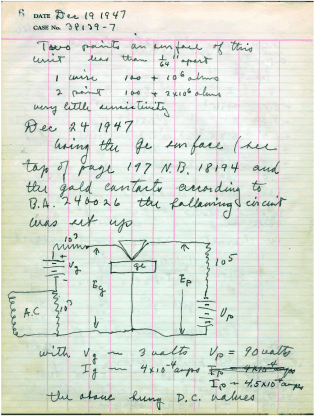 6
DATE Dec 19 1947
CASE No. 38139-7
Two points on surface of this
unit less than 1/64" apart
1 wire 100 + 10⁶ ohms
2 point 100 + 2x10⁶ ohms
very little sensitivity
Dec 24 1947
Using the ge surface (see
top of page 197 N.B. 18194 and
the gold contacts according to
B.A. 240026 the following circuit
was set up
10³
+
Vg
Eg
ge
Ep
10⁵
A.C
10³
Vp
with Vg ~ 3 volts Vp = 90 volts
Ig ~ 4x10⁻⁴ amps
Ip ~ 4.5x10⁻⁴ amps
the above being D.C. values